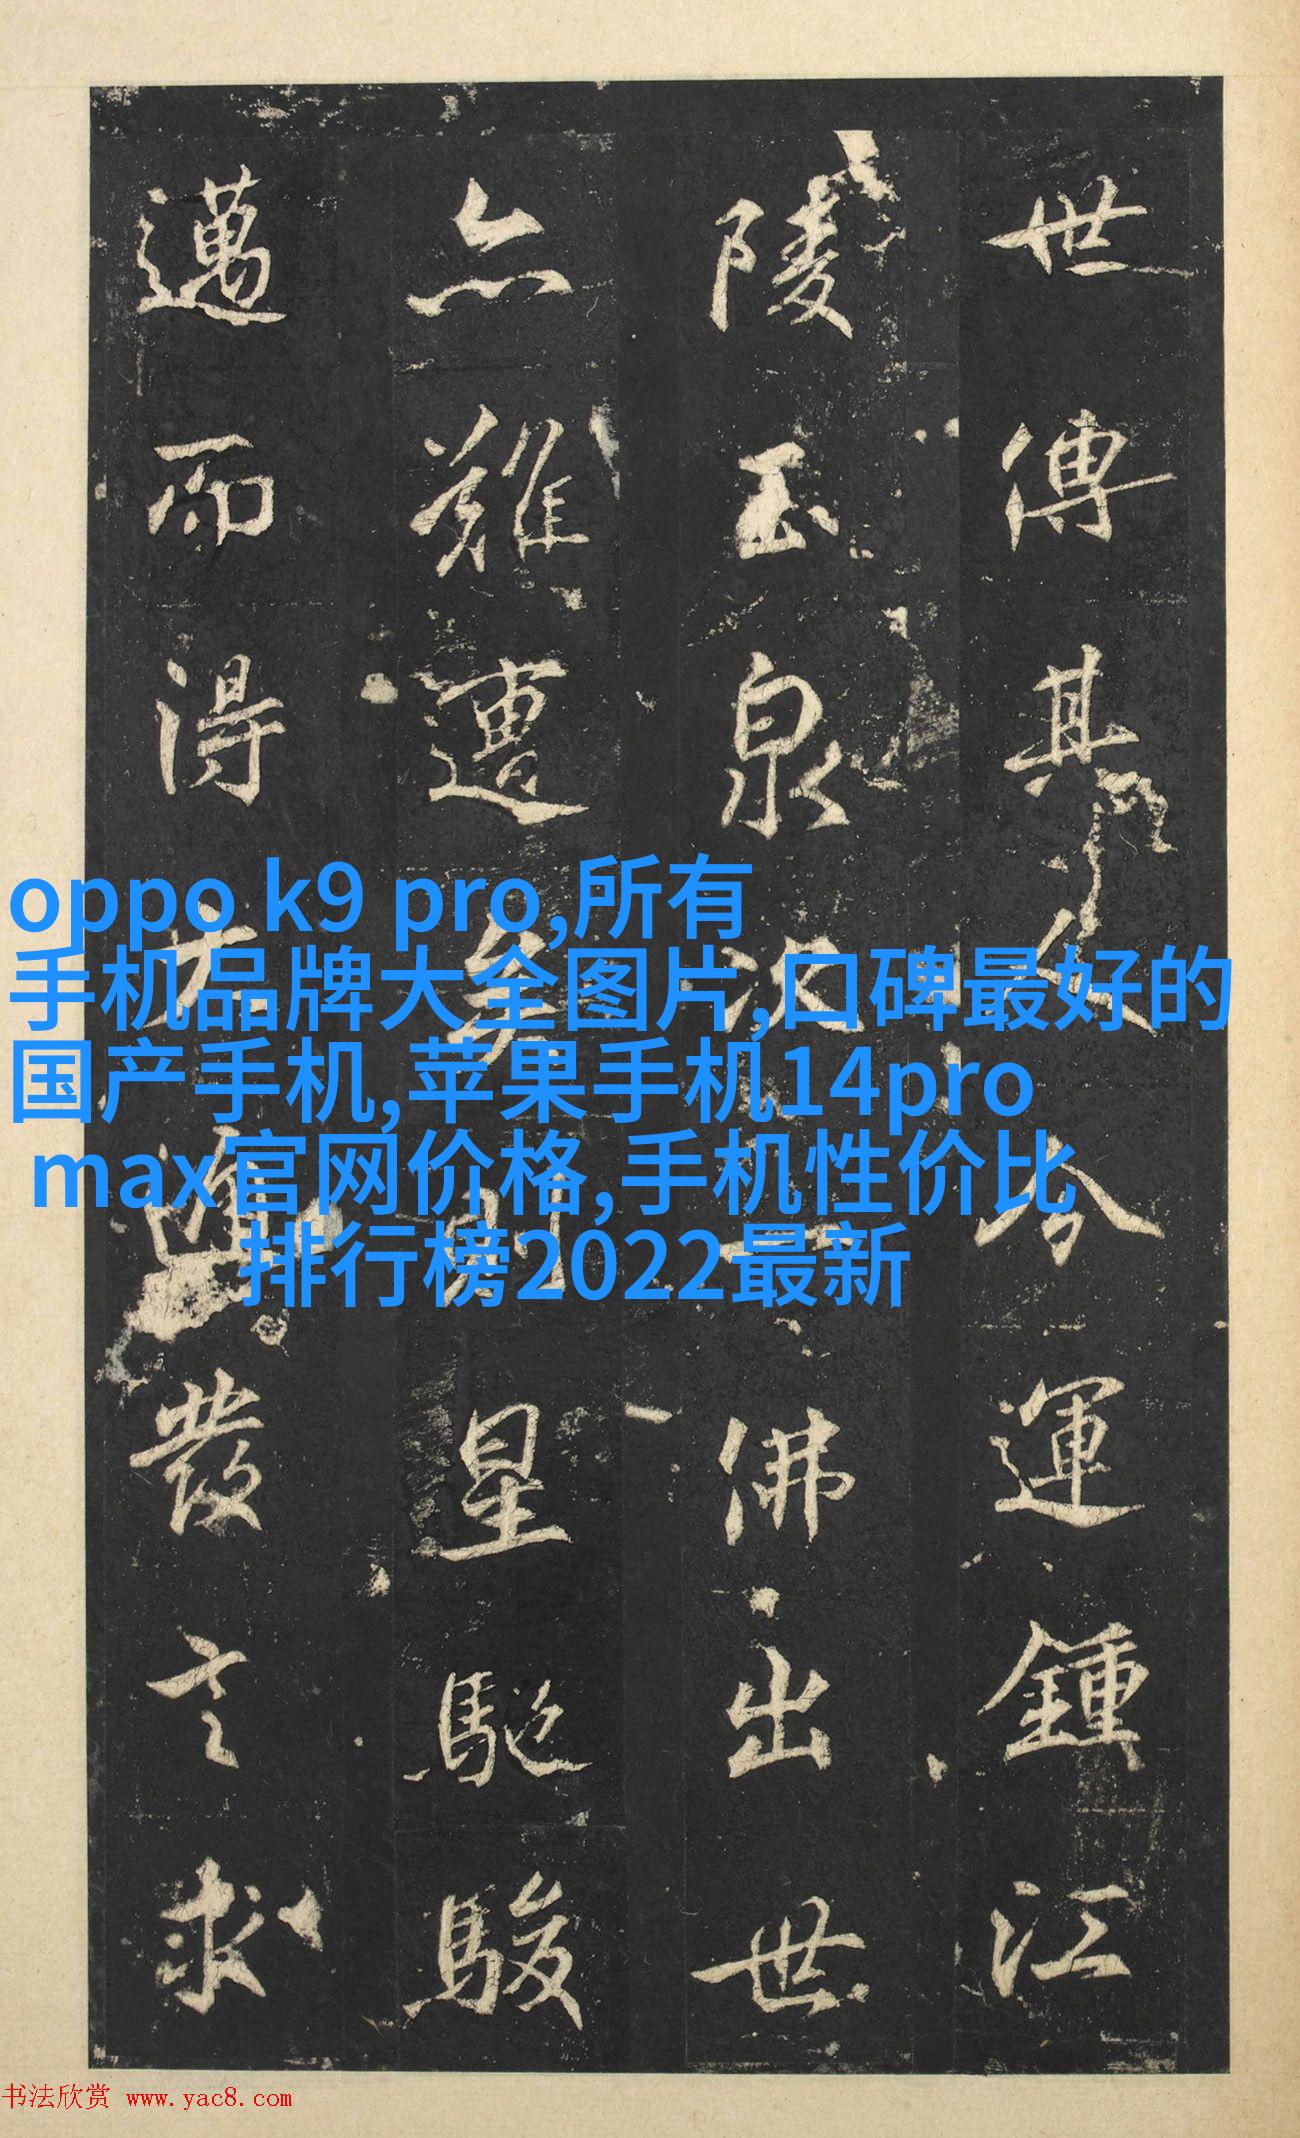 世傳其今運鍾江
陵玉泉次一佛出世
亦難遭矣則星馳駿
邁而得大發求
oppo k9 pro,所有
手机品牌大全图片,口碑最好的
国产手机,苹果手机14pro
max官网价格,手机性价比
排行榜2022最新
书法欣赏 www.yac8.com